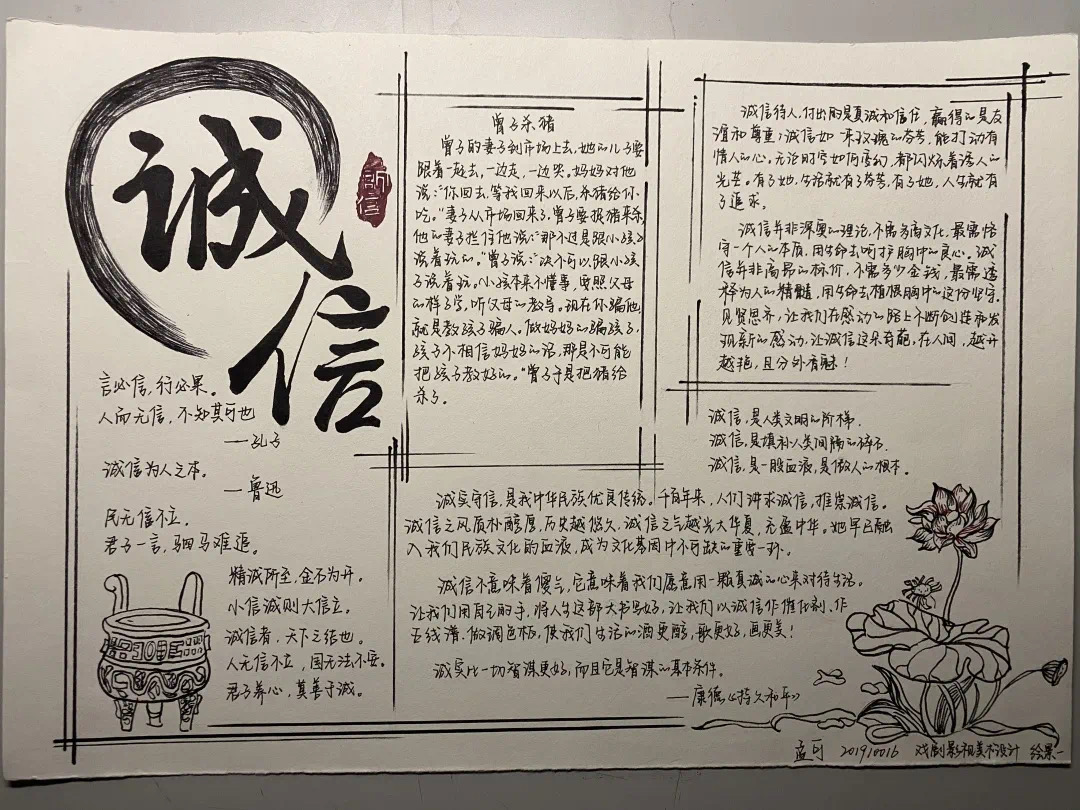 诚信
诚信
言必信,行必果。
人而无信,不知其可也
——孔子
诚信为人之本。
——鲁迅
民无信不立。
君子一言,驷马难追。
精诚所至,金石为开。
小信诚则大信立。
诚信者,天下之结也。
人无信不立,国无法不安。
君子养心,莫善于诚。
曾子杀猪
曾子的妻子到市场上去,她的儿子要
跟着一起去,一边走,一边哭。妈妈对他
说:“你回去,等我回来以后,杀猪给你
吃。”妻子从市场回来了,曾子要捉猪来杀
他的妻子拦住他说:“那不过是跟小孩子
说着玩的。”曾子说:“决不可以跟小孩
子说着玩。小孩本来不懂事,要照父母
的样子学,听父母的教导。现在你骗他,
就是教孩子骗人。做妈妈的骗孩子,
孩子不相信妈妈的话,那是不可能
把孩子教好的。”曾子于是把猪给
杀了。
诚信待人,付出的是真诚和信任,赢得的是友
谊和尊重;诚信如一束玫瑰的芬芳,能打动有
情人的心。无论时空如何变幻,都闪烁着诱人的
光芒。有了她,生活就有了芬芳,有了她,人生就有
了追求。
诚信并非深奥的理论,不需多高文化,最需恪
守一个人的本质,用生命去呵护胸中的良心。诚
信并非高昂的标价,不需多少金钱,最需透
释为人的精髓,用生命去植根胸中的这份坚守。
见贤思齐,让我们在感动的路上不断创造和发
现新的感动,让诚信这朵奇葩,在人间,越开
越艳,且分外有魅!
诚信,是人类文明的阶梯.
诚信,是填补人类间隔的碎石.
诚信,是一股血液,是做人的根本.
诚实守信,是我中华民族优良传统。千百年来,人们讲求诚信,推崇诚信。
诚信之风质朴醇厚,历史越悠久,诚信之气越光大华夏,充盈中华。她早已融
入我们民族文化的血液,成为文化基因中不可缺的重要一环。
诚信不意味着傻气,它意味着我们愿意用一颗真诚的心来对待生活。
让我们用自己的手,将人生这部大书写好,让我们以诚信作催化剂,作
五线谱,做调色板,使我们生活的酒更醇,歌更好,画更美!
诚实比一切智谋更好,而且它是智谋的基本条件。
——康德《持久和平》
孟可 201910016 戏剧影视美术设计 绘景一